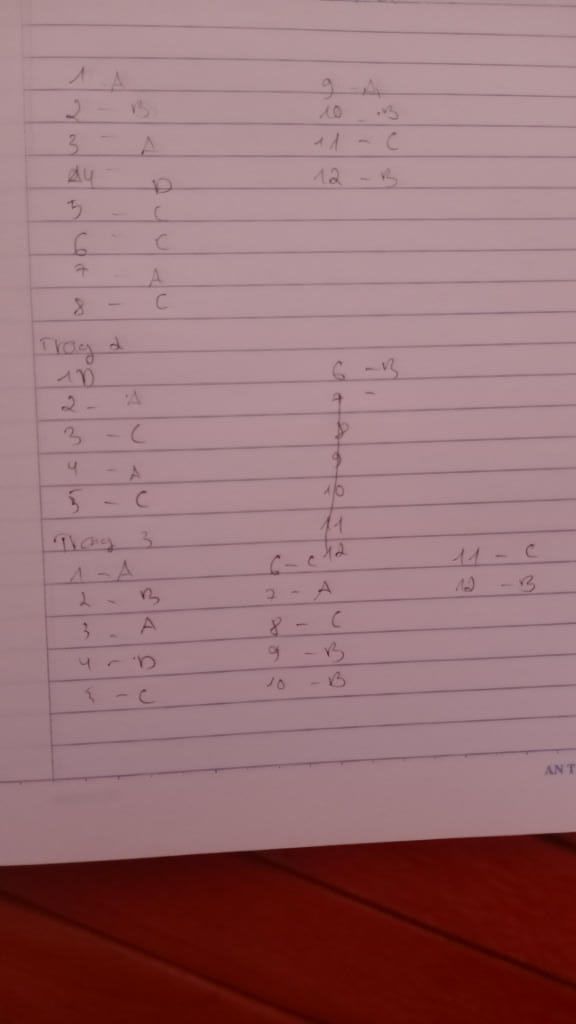 1 A
2 - B
3 - A
4 D
5 - C
6 C
7 - A
8 - C
9 - A
10 - B
11 - C
12 - B
Trag 2
1 D
2 - A
3 - C
4 - A
5 - C
6 - B
7 -
8
9
10
11
12
Trag 3
1 - A
2 - B
3 - A
4 - D
5 - C
6 - C
7 - A
8 - C
9 - B
10 - B
11 - C
12 - B
AN T